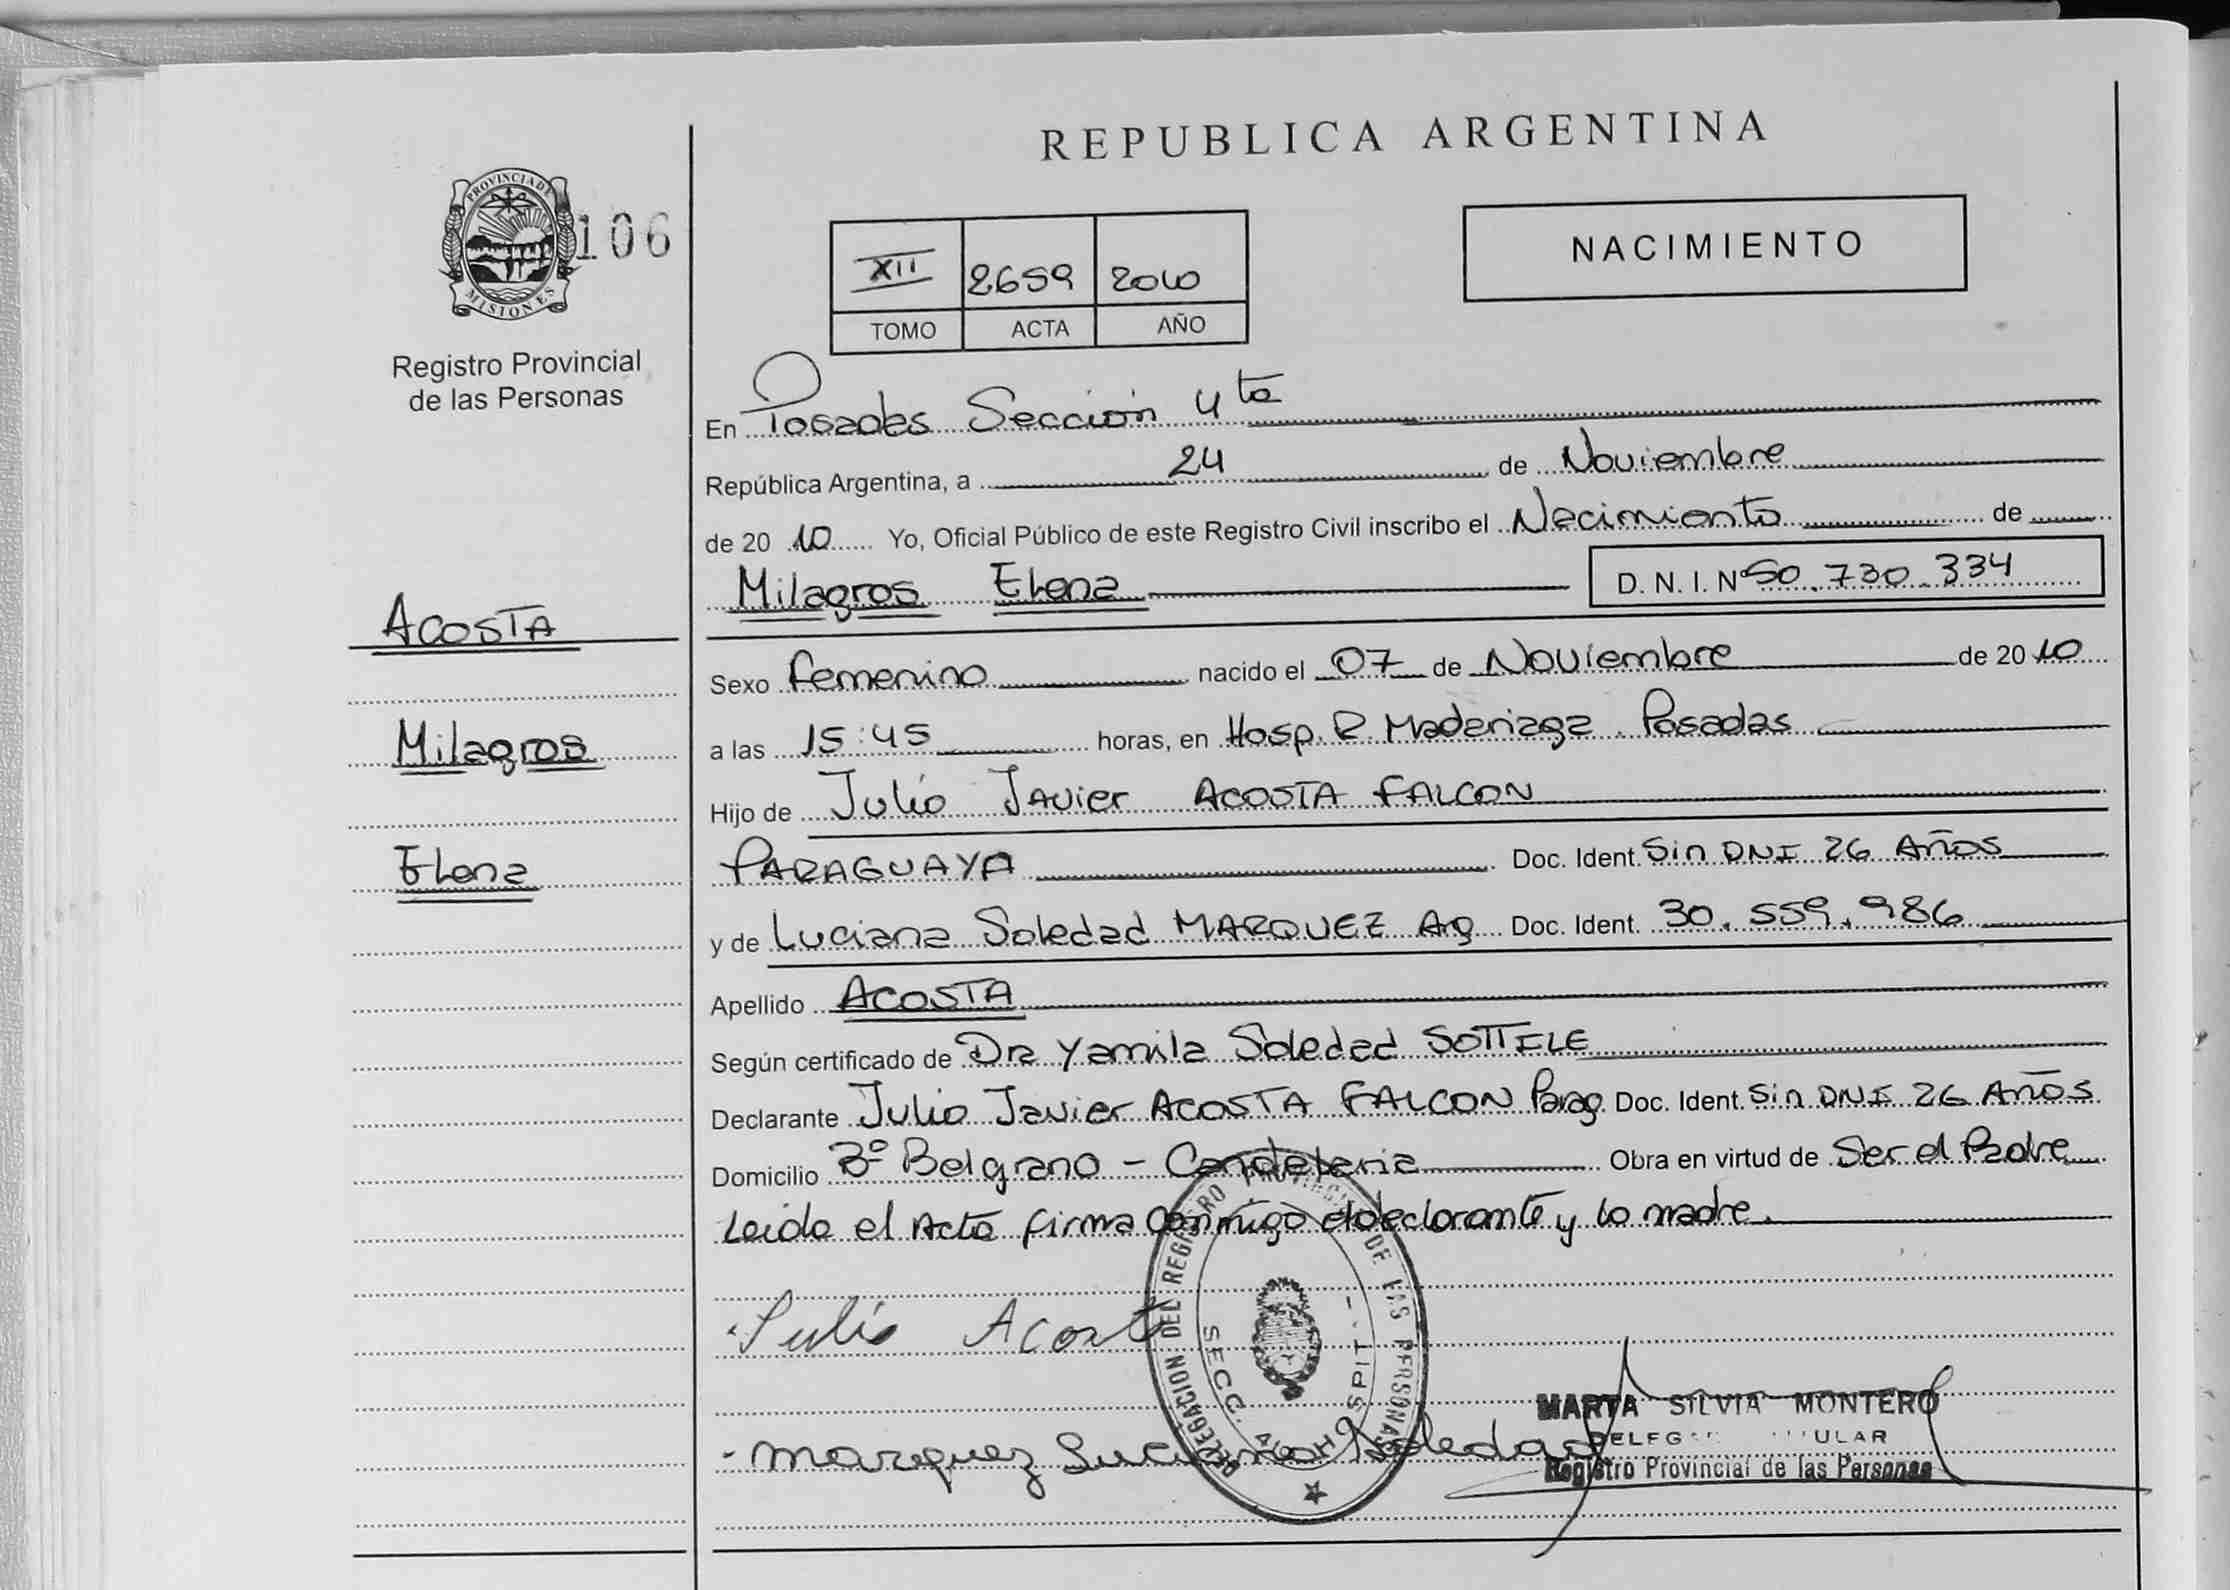 REPUBLICA ARGENTINA
PROVINCIA DE
MISIONES
106
Registro Provincial
de las Personas
XII 2659 2010
TOMO ACTA AÑO
NACIMIENTO
En Posadas Sección 4ta
República Argentina, a 24 de Noviembre
de 20 10 Yo, Oficial Público de este Registro Civil inscribo el Nacimiento de
Milagros Elena D. N. I. Nº 50.730.334
ACOSTA
Milagros
Elena
Sexo Femenino nacido el 07 de Noviembre de 20 10
a las 15:45 horas, en Hosp. R. Madariaga. Posadas
Hijo de Julio Javier ACOSTA FALCON
PARAGUAYA Doc. Ident. Sin DNI 26 Años
y de Luciana Soledad MARQUEZ Ag Doc. Ident. 30.559.986
Apellido ACOSTA
Según certificado de Dra Yamila Soledad SOTTILE
Declarante Julio Javier ACOSTA FALCON Parag Doc. Ident. Sin DNI 26 Años
Domicilio Bº Belgrano - Candelaria Obra en virtud de Ser el Padre
Leida el Acta firma conmigo el declarante y la madre.
Julio Acosta
Marquez Luciana Soledad
DELEGACION DEL REGISTRO PROVINCIAL DE LAS PERSONAS
SECC. 4ta HOSPIT
MARTA SILVIA MONTERO
Registro Provincial de las Personas